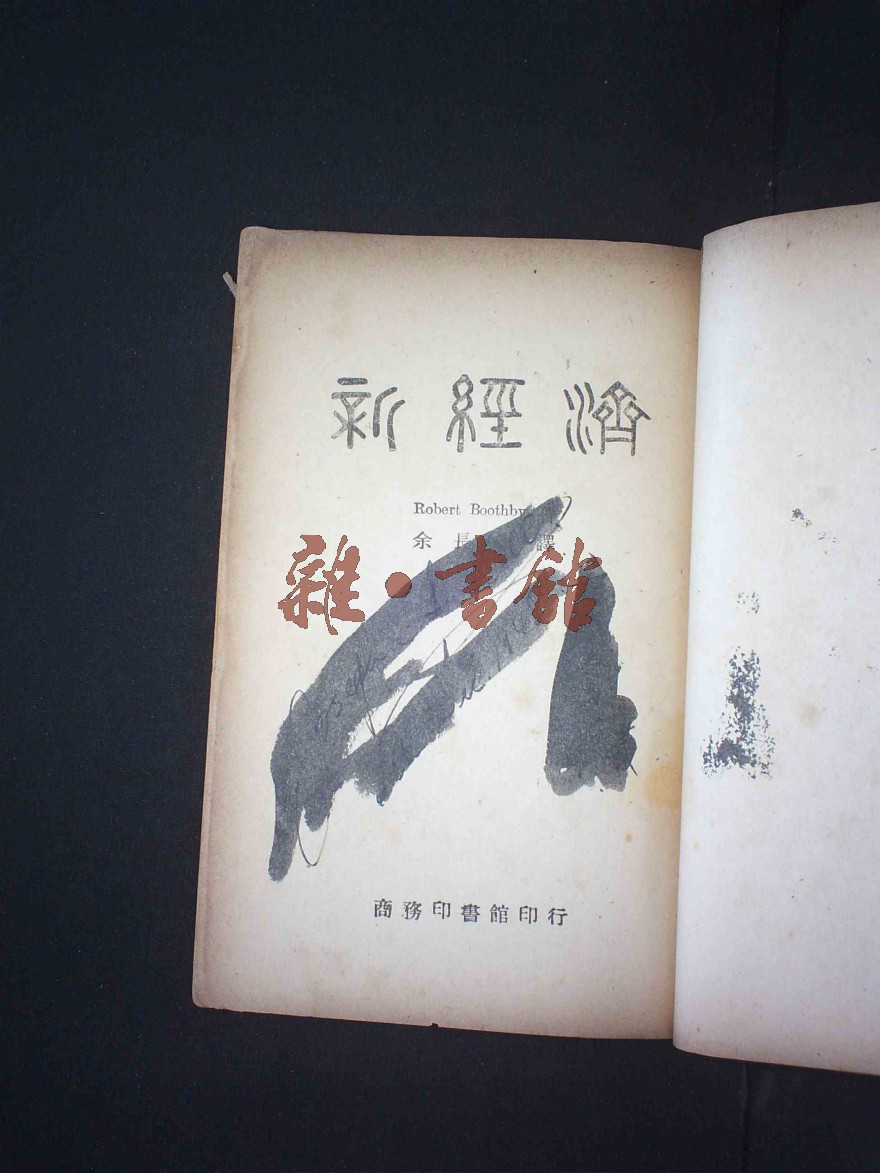 新經濟
Robert Boothby
余長 譯
雜·書館
商務印書館印行